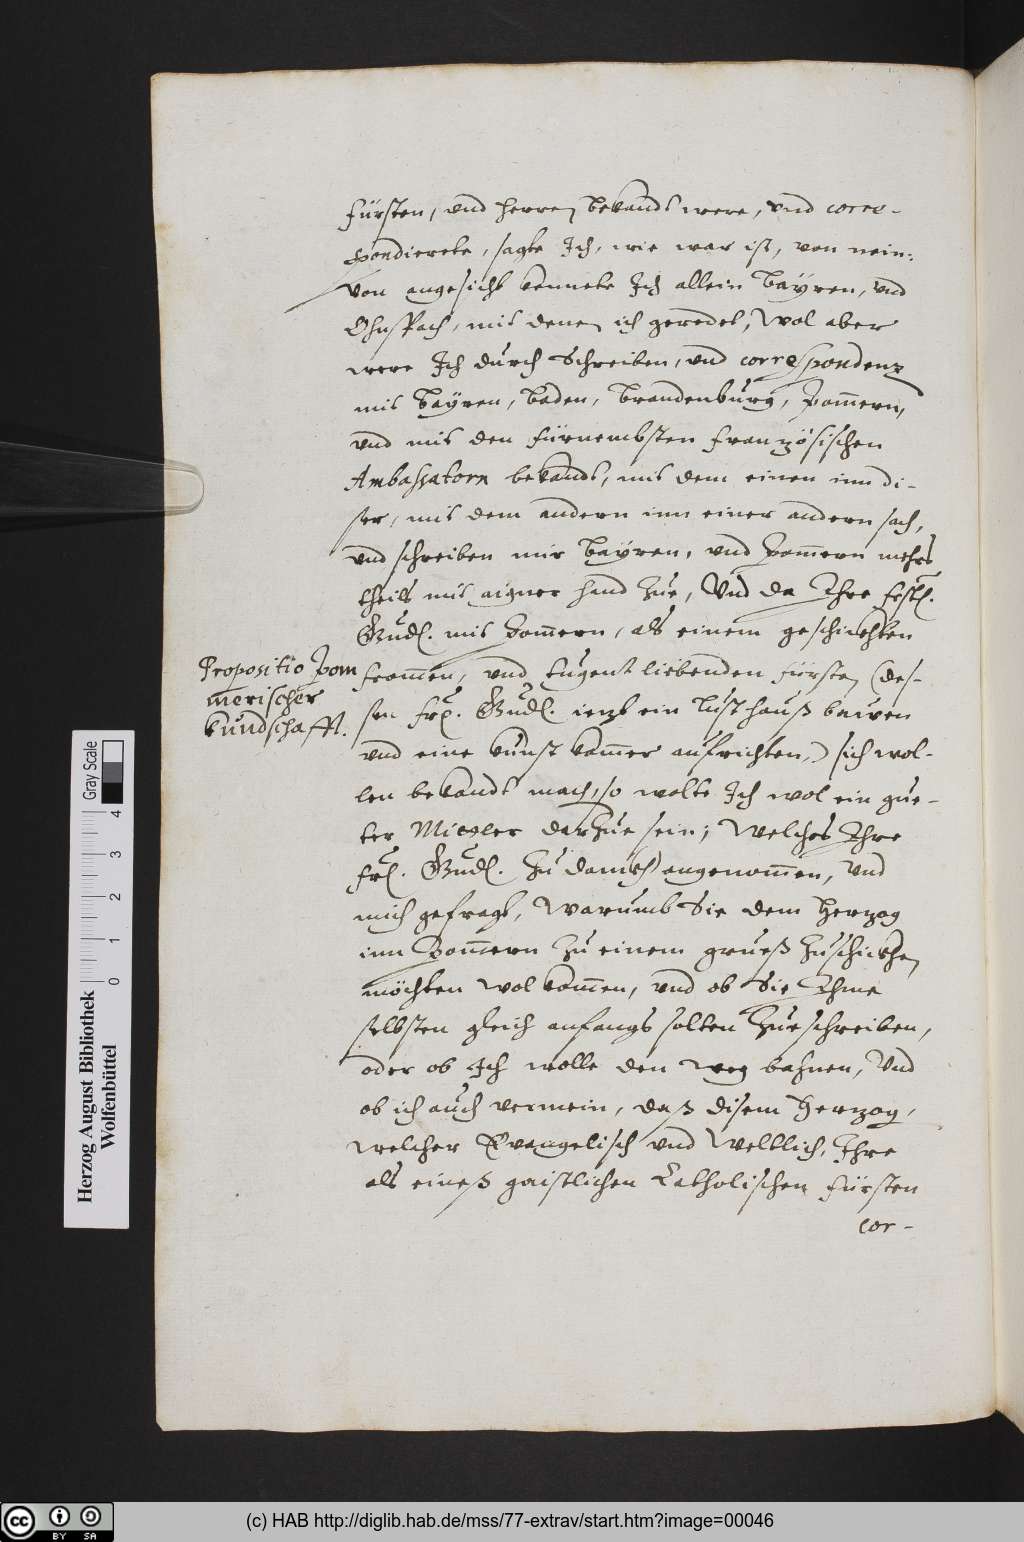 fürsten, und herren bekandt were, und corre-
spondierete, sagte Ich, wie war ist, von nein:
von angesicht kennete Ich allein Bayren, und
Ohnspach, mit denen ich geredet, Wol aber
were Ich durch Schreiben, und correspondenz
mit Bayren, Baden, Brandenburg, Pom̄ern,
und mit den fürnembsten französischen
Ambassatorn bekandt, mit dem einen inn di-
ser, mit dem andern inn einer andern sach,
und schreiben mir Bayren, und Pom̄ern mehrs
theils mit aigner hand zue, Und da Ihre frstl.
Gnd. mit Pom̄ern, als einem geschickhten
Propositio Pom
merischer
kundschafft.
from̄en, und tugent liebenden fürsten (des-
sen frl. Gnd. iezt ein lusthauß bauen
und eine kunst kam̄er aufrichten,) sich wol-
len bekandt mach, so wolte Ich wol ein gue-
ter Mitler darzue sein; Welches Ihre
frl. Gnd. zu danckh angenom̄en, Und
mich gefragt, Warumb Sie dem Herzog
inn Pom̄ern zu einem grueß zuschickhen
möchten wol kom̄en, und ob Sie Ihme
selbsten gleich anfangs solten zueschreiben,
oder ob Ich wolle den weg bahnen, Und
ob ich auch vermein, daß disem Herzog,
welcher Evangelisch und Weltlich, Ihre
als eineß gaistlichen Catholischen fürsten
cor-
Gray Scale
0 1 2 3 4
Herzog August Bibliothek
Wolfenbüttel
cc BY SA
(c) HAB http://diglib.hab.de/mss/77-extrav/start.htm?image=00046